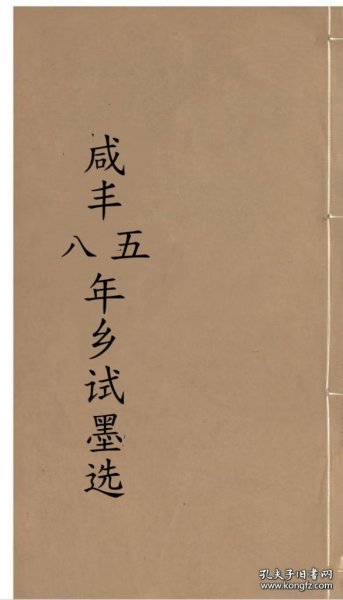 咸丰五八年乡试墨选
孔夫子旧书网
www.kongfz.com